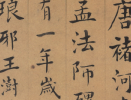 唐褚河
孟法師碑
有一年歲
琅耶王澍